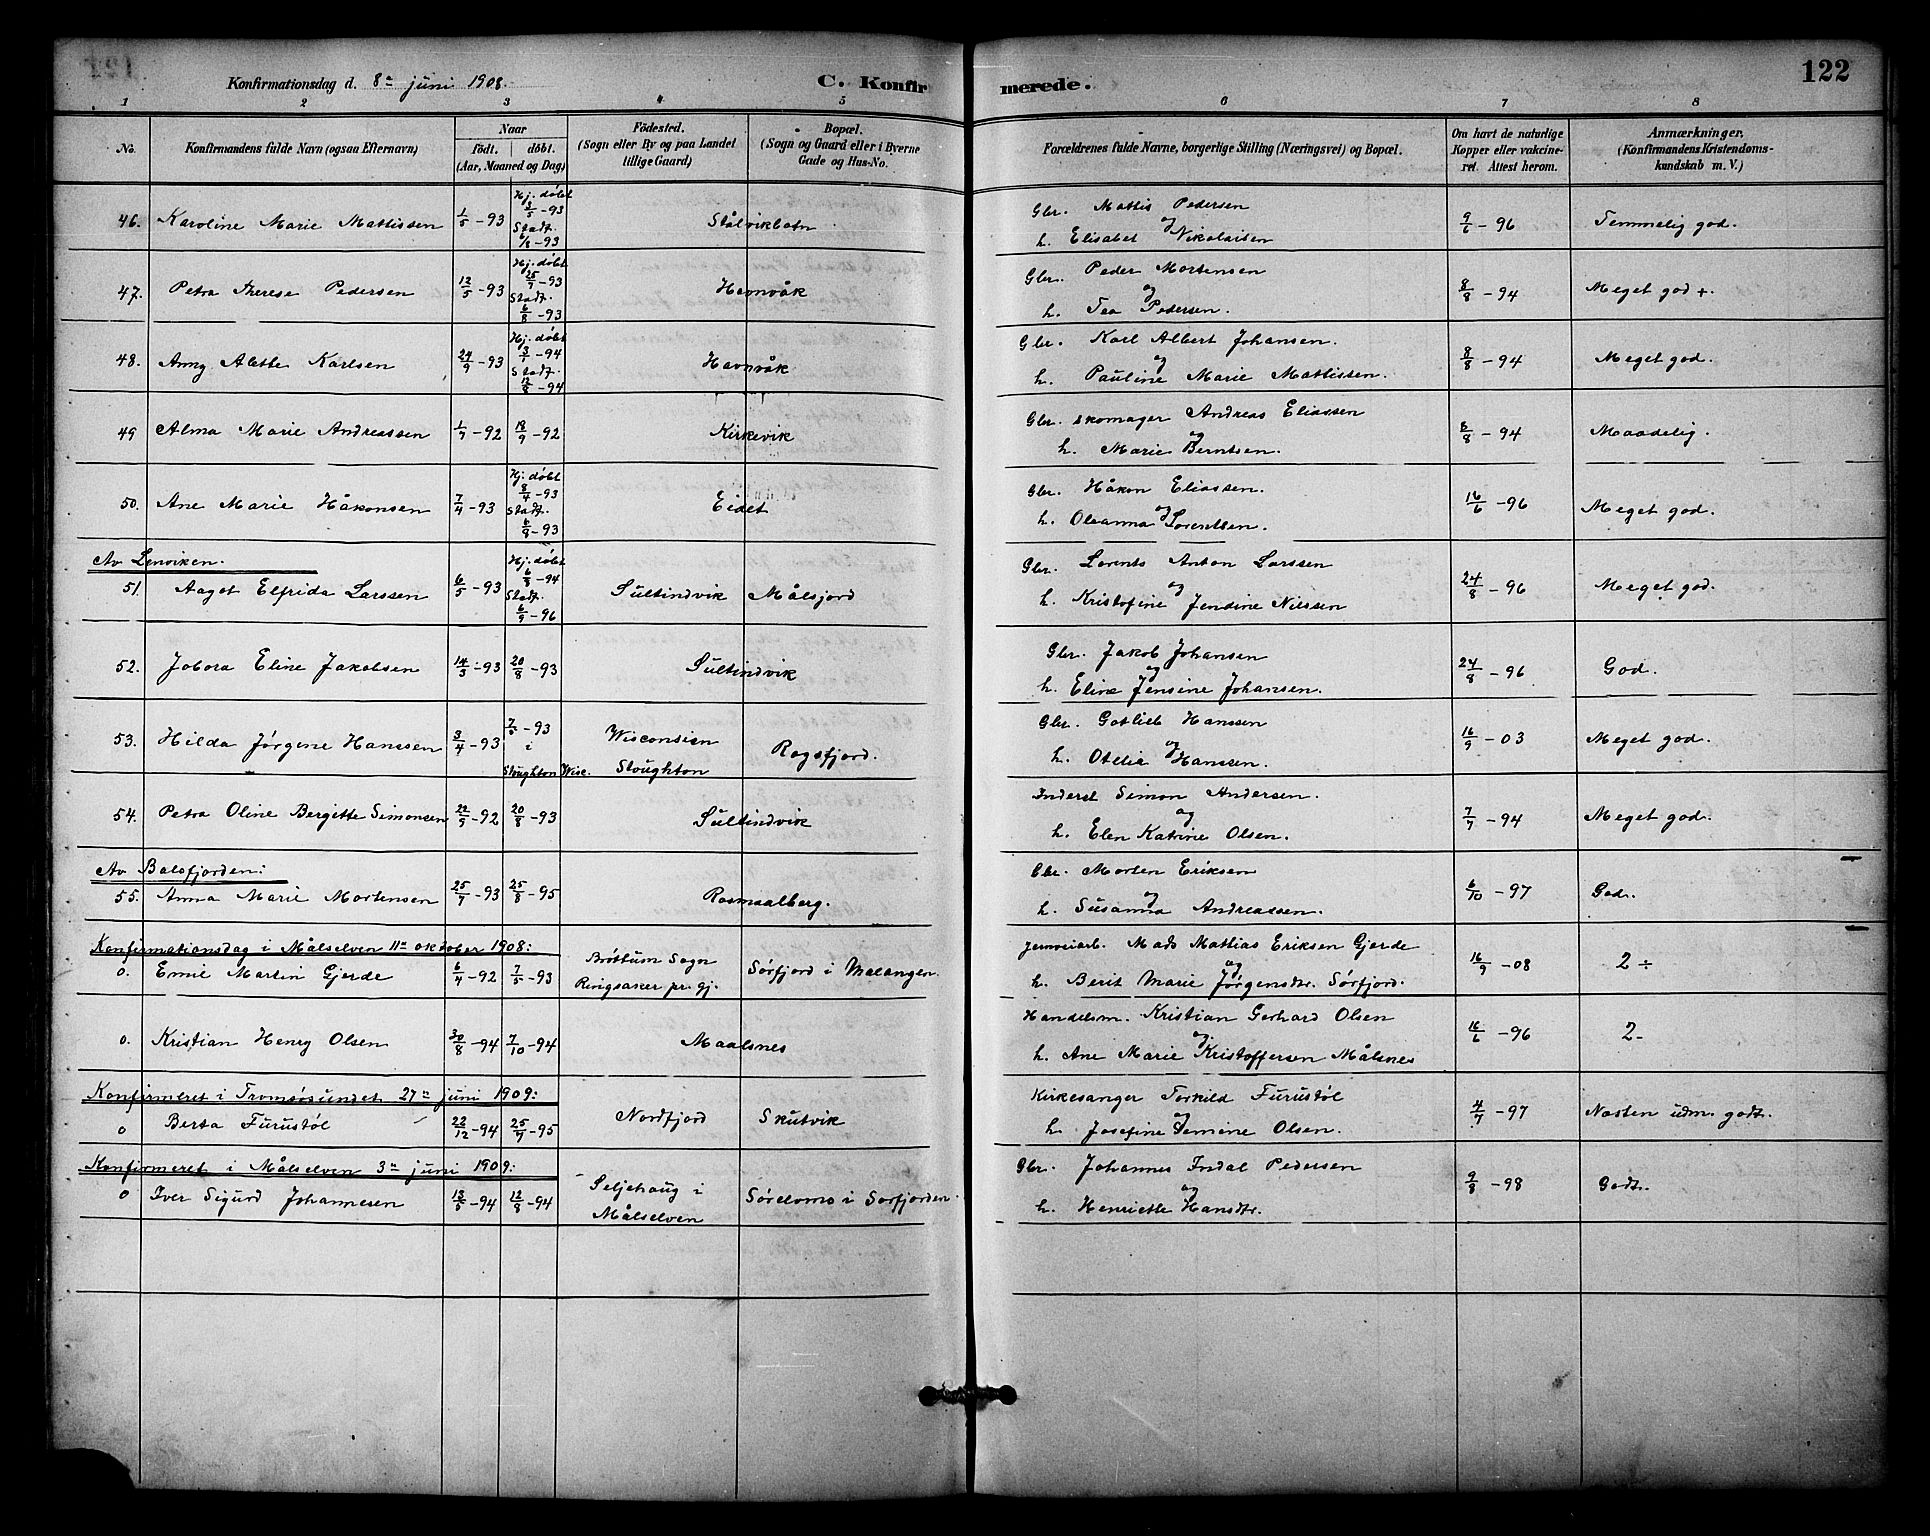 Konfirmationsdag d. 8de juni 1908. C. Konfirmerede. 122
1 2 3 4 5 6 7 8
No.
Konfirmandens fulde Navn (ogsaa Efternavn)
Naar
födt. döbt.
(Aar, Maaned og Dag)
Födested.
(Sogn eller By og paa Landet
tillige Gaard)
Bopæl.
(Sogn og Gaard eller i Byerne
Gade og Hus-No.
Forældrenes fulde Navne, borgerlige Stilling (Næringsvei) og Bopæl.
Om havt de naturlige
Kopper eller vakcine-
ret. Attest herom.
Anmærkninger.
(Konfirmandens Kristendoms-
kundskab m. V.)
46. Karoline Marie Mattissen 1/5 -93 Hj. døbt 3/5 -93 Stadf. 6/8 -93 Stålvikbotn Gbr. Mattis Pedersen og h. Elisabet Nikolaisen 9/6 -96 Temmelig god.
47. Petra Therese Pedersen 12/5 -93 Hj. døbt 25/7 -93 Stadf. 6/8 -93 Havnvåk Gbr. Peder Mortensen og h. Tea Pedersen. 8/8 -94 Meget god +.
48. Anny Alette Karlsen 24/9 -93 Hj. døbt 3/1 -94 Stadf. 12/8 -94 Havnvåk Gbr. Karl Albert Johansen. og h. Pauline Marie Mattissen. 8/8 -94 Meget god.
49 Alma Marie Andreassen 1/7 -92 18/9 -92 Kirkevik Gbr. skomager Andreas Eliassen og h. Marie Berntsen. 8/8 -94 Maadelig.
50. Ane Marie Håkonsen 7/4 -93 Hj. døbt 8/4 -93 Stadf. 6/8 -93 Eidet Gbr. Håkon Eliassen. og h. Oleanna Lorentsen. 16/6 -96 Meget god.
Av Lenviken.
51. Aagot Elfrida Larssen 6/5 -93 Hj. døbt 6/8 -94 Stadf. 6/9 -96 Sultindvik Målsjord Gbr. Lorents Anton Larssen og h. Kristofine Jendine Nilssen 24/8 -96 Meget god.
52. Jobora Eline Jakobsen 14/3 -93 20/8 -93 Sultindvik Gbr. Jakob Johansen og h. Eline Jensine Johansen. 24/8 -96 God.
53. Hilda Jørgene Hanssen 3/4 -93 7/5 -93 i Stoughton Wisc. Wisconsien Stoughton Rogsfjord. Gbr. Gotlieb Hanssen og h. Otelie Hanssen. 16/9 -03 Meget god.
54. Petra Oline Bergitte Simonsen 22/9 -92 20/8 -93 Sultindvik Inderst Simon Andersen. og h. Elen Katrine Olsen. 7/7 -94 Meget god.
Av Balsfjorden:
55. Anna Marie Mortensen 25/7 -93 25/8 -95 Rosmaalberg. Gbr. Morten Eriksen og h. Susanna Andreassen. 6/10 -97 God.
Konfirmationsdag i Målselven 11te oktober 1908:
0. Emil Martin Gjerde 6/4 -92 7/5 -93 Brøttum Sogn Ringsaker pr. gj. Sørfjord i Malangen. Jernveiarb. Mads Mathias Eriksen Gjerde og h. Berit Marie Jørgensdtr. Sørfjord. 16/9 -08 2 ÷
0. Kristian Henry Olsen 30/8 -94 7/10 -94 Maalsnes Handelsm. Kristian Gerhard Olsen og h. Ane Marie Kristoffersen Målsnes 16/6 -96 2-
Konfirmeret i Tromsøsundet 27de juni 1909:
0 Berta Furustøl 22/12 -94 25/9 -95 Nordfjord Skutvik Kirkesanger Torkild Furustøl og h. Josefine Olsen. 4/7 -97 Næsten udm. godt.
Konfirmeret i Målselven 3de juni 1909:
0 Iver Sigurd Johannesen 13/5 -94 12/8 -94 Seljehaug i Målselven Sørelvmo i Sørfjorden. Gbr. Johannes Indal Pedersen og h. Henriette Hansdtr. 9/8 -98 Godt.